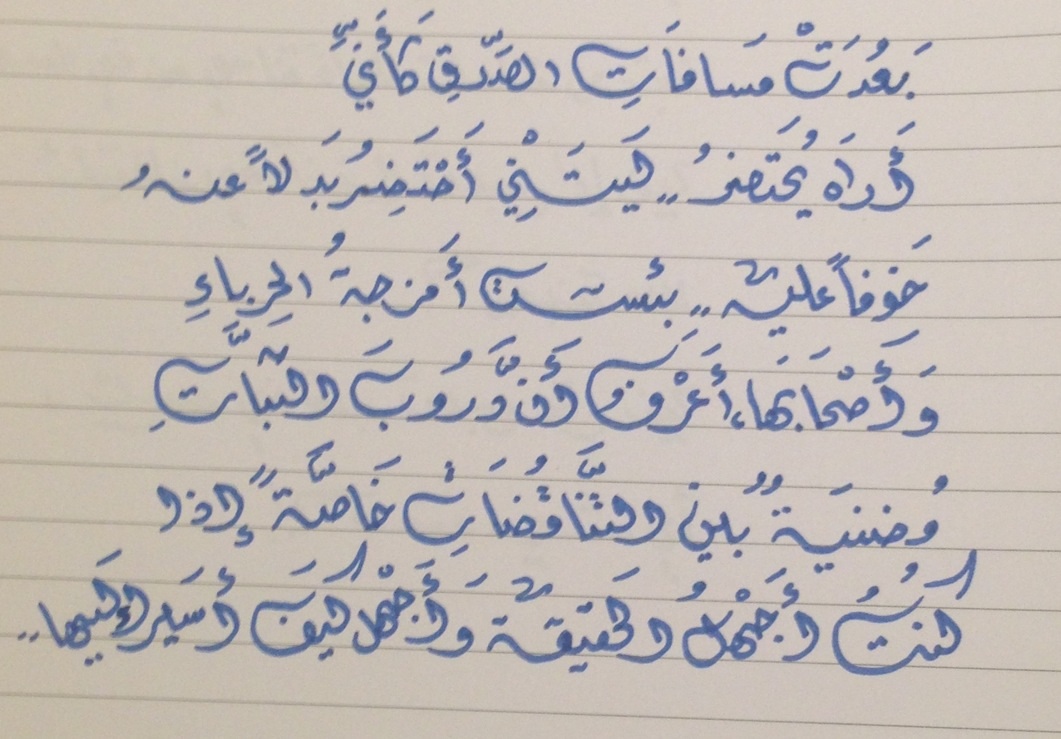 بَعُدَتْ مَسافَاتِ الصِّدْقِ كَأَنِّي
أَراهُ يُحْتَضرُ .. لَيتَنِي أَحْتَضِرُ بَدلاً عنهُ
خَوفاً عليهِ .. بِئست أمزجةُ الحِرباءِ
وَأَصْحَابهَا، أَعْرفُ أَنَّ دُرُوبَ الثَّبَاتِ
مُضنيَةٌ بين التَّنَاقُضَاتِ خَاصَّةً إذا
كُنتُ أَجْهلُ الحَقيقة وَأَجْهل كَيفَ أَسَير إليها..